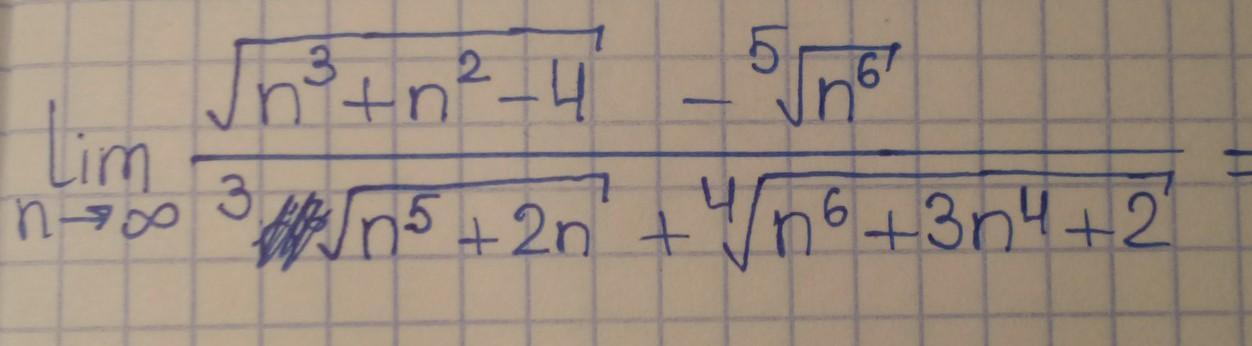 lim n→∞ (√(n³+n²-4) - ⁵√(n⁶)) / (³√(n⁵+2n) + ⁴√(n⁶+3n⁴+2)) =